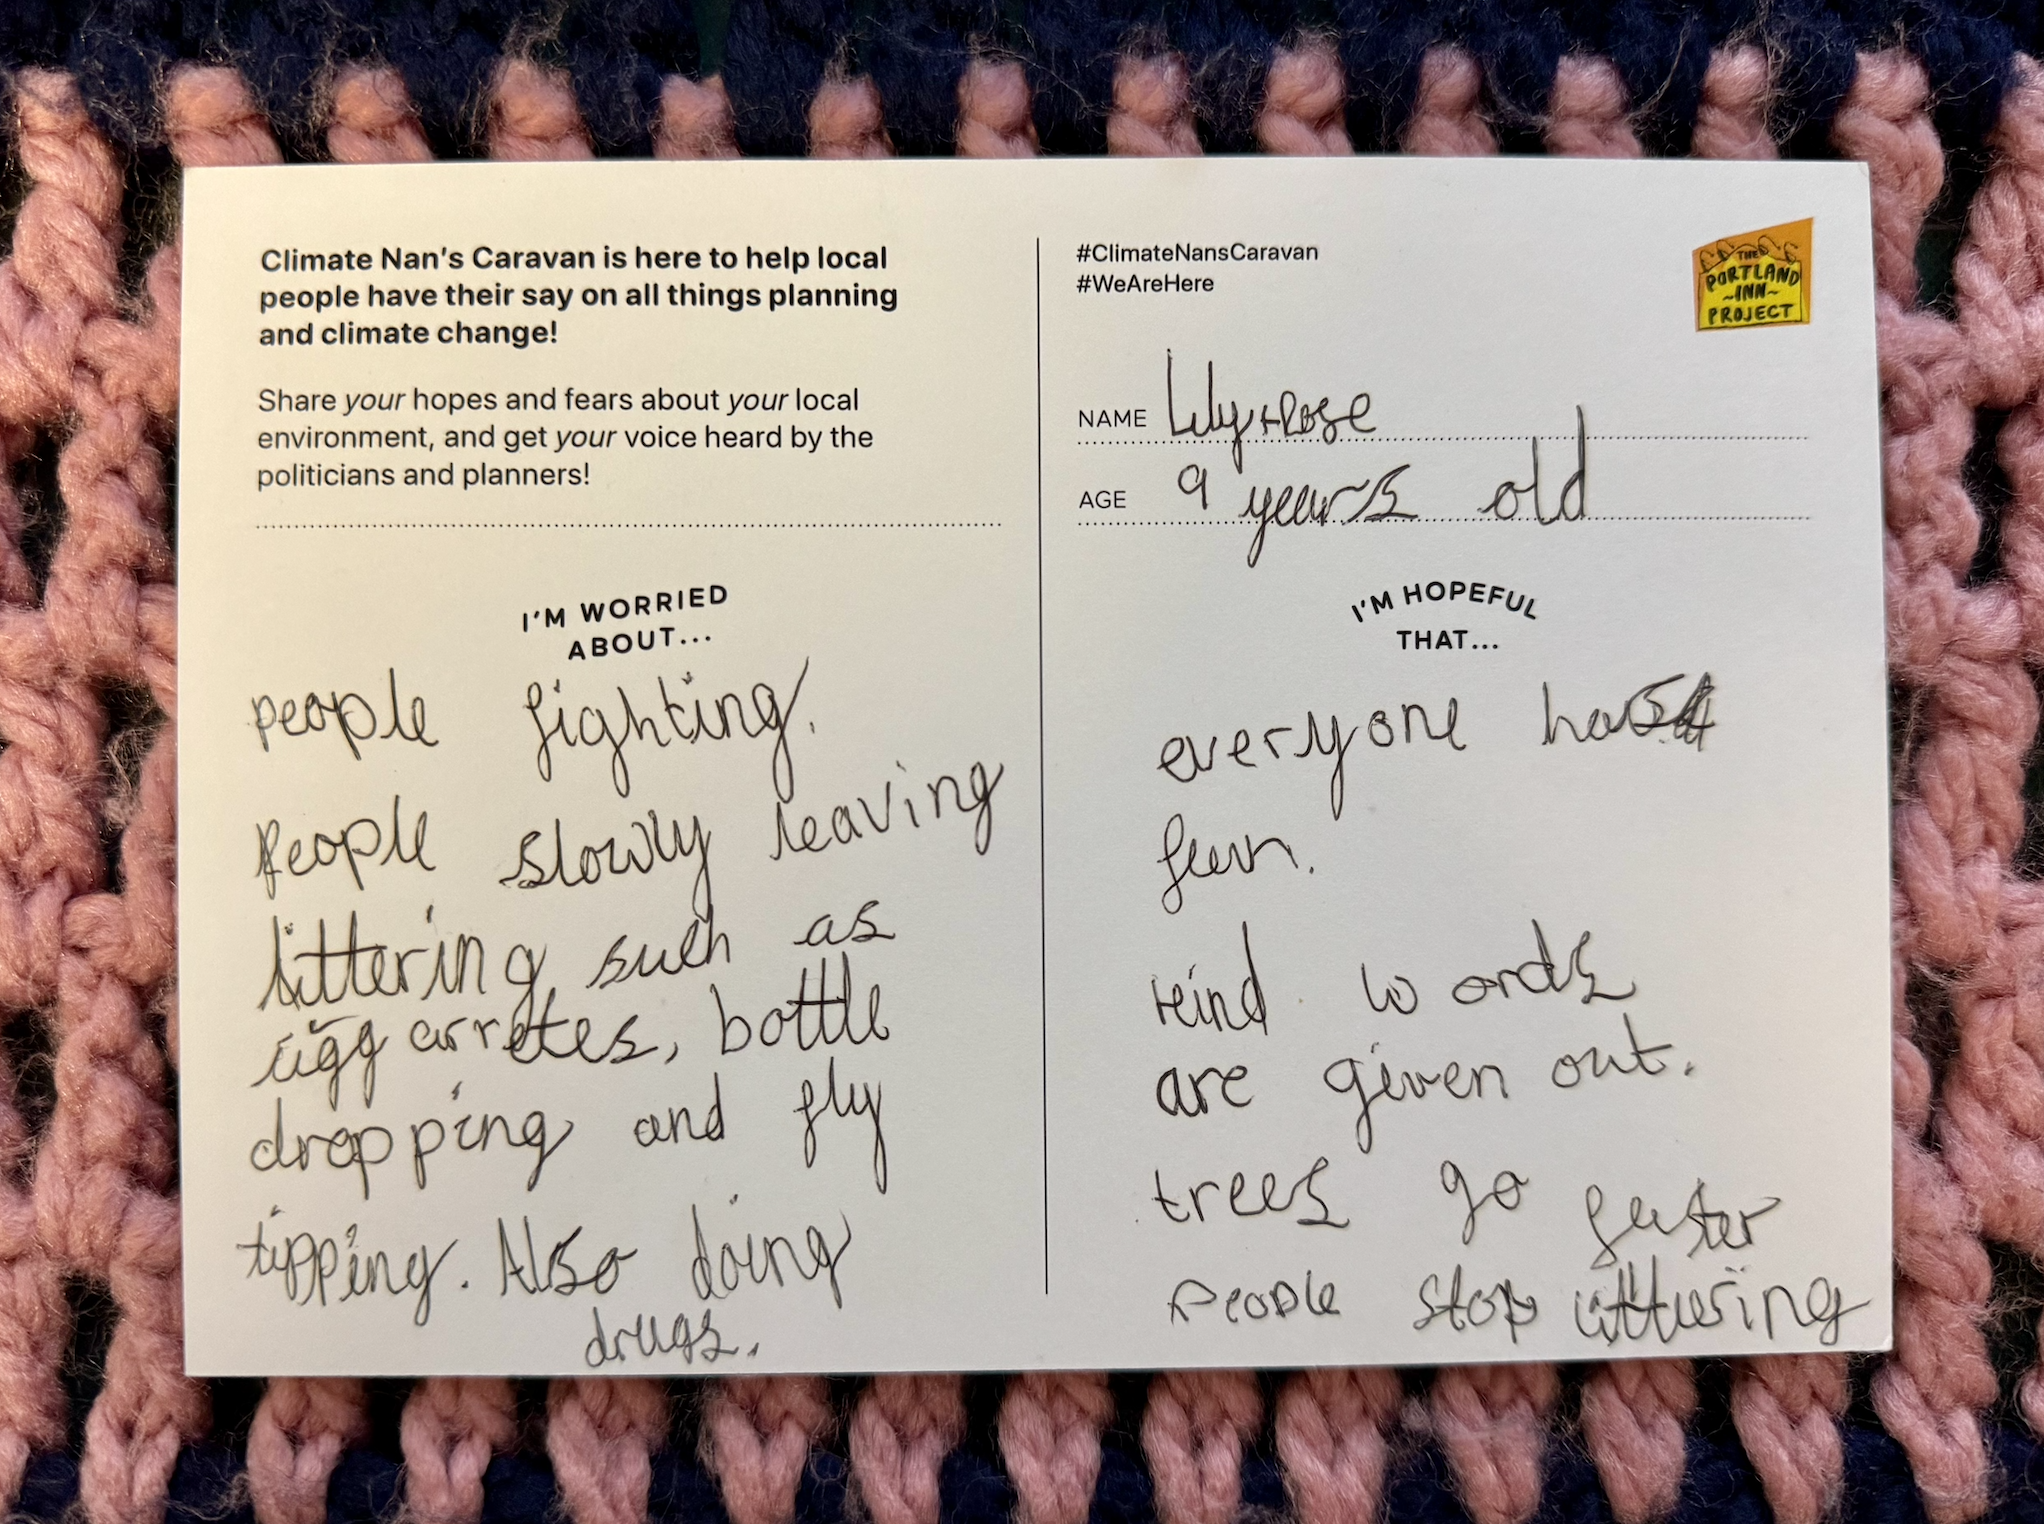 Climate Nan's Caravan is here to help local
people have their say on all things planning
and climate change!
Share your hopes and fears about your local
environment, and get your voice heard by the
politicians and planners!
I'M WORRIED
ABOUT...
people fighting.
People slowly leaving
littering such as
ciggarretes, bottle
dropping and fly
tipping. Also doing
drugs.
#ClimateNansCaravan
#WeAreHere
THE
PORTLAND
~INN~
PROJECT
NAME Lily-Rose
AGE 9 years old
I'M HOPEFUL
THAT...
everyone has
fun.
kind words
are given out.
trees go faster
People stop littering